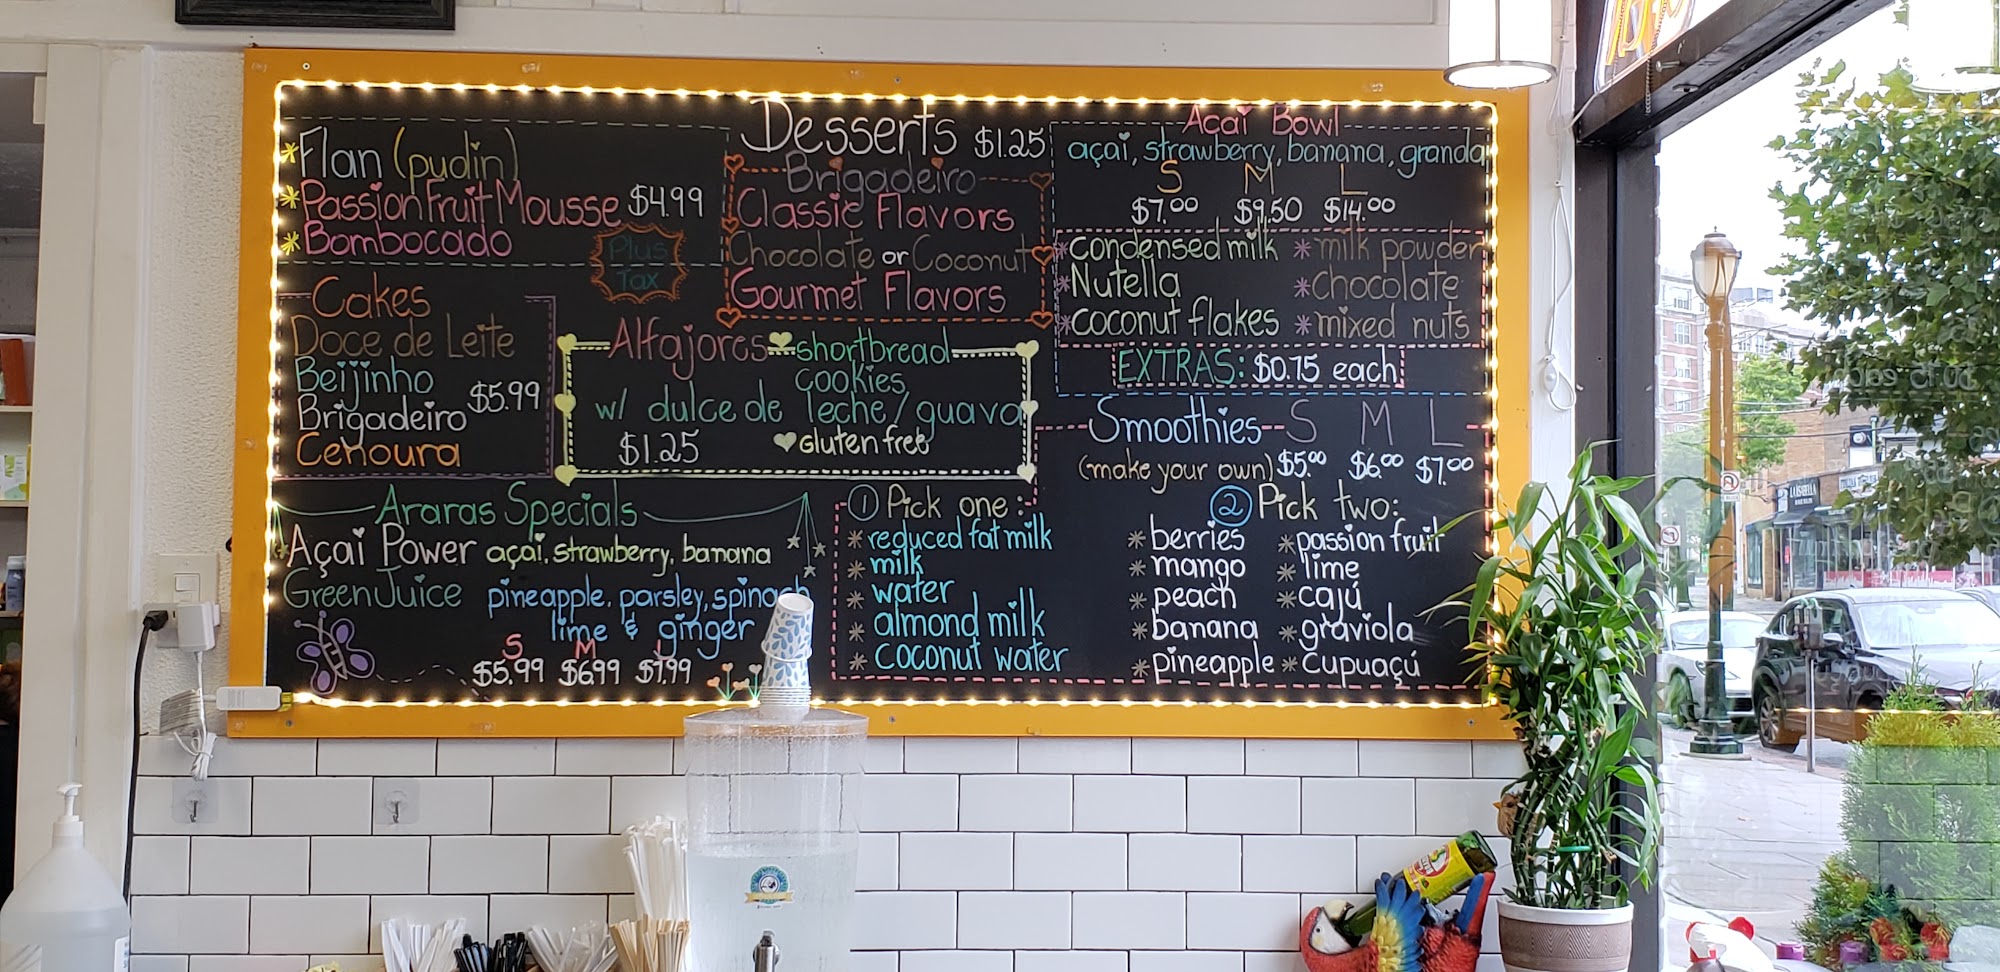 *Flan (pudin)
*Passion Fruit Mousse $4.99
*Bombocado
Plus
Tax
Cakes
Doce de Leite
Beijinho
Brigadeiro $5.99
Cenoura
Desserts $1.25
Brigadeiro
Classic Flavors
Chocolate or Coconut
Gourmet Flavors
Alfajores shortbread
cookies
w/ dulce de leche/guava
$1.25 gluten free
Açai Bowl
açai, strawberry, banana, granola
S M L
$7.00 $9.50 $14.00
*condensed milk *milk powder
*Nutella *chocolate
*coconut flakes *mixed nuts
EXTRAS: $0.75 each
Araras Specials
Açai Power açai, strawberry, banana
Green Juice pineapple, parsley, spinach
lime & ginger
S M L
$5.99 $6.99 $7.99
Smoothies S M L
(make your own) $5.00 $6.00 $7.00
1 Pick one:
*reduced fat milk
*milk
*water
*almond milk
*coconut water
2 Pick two:
*berries *passion fruit
*mango *lime
*peach *cajú
*banana *graviola
*pineapple *cupuaçú
LA ISABELLA